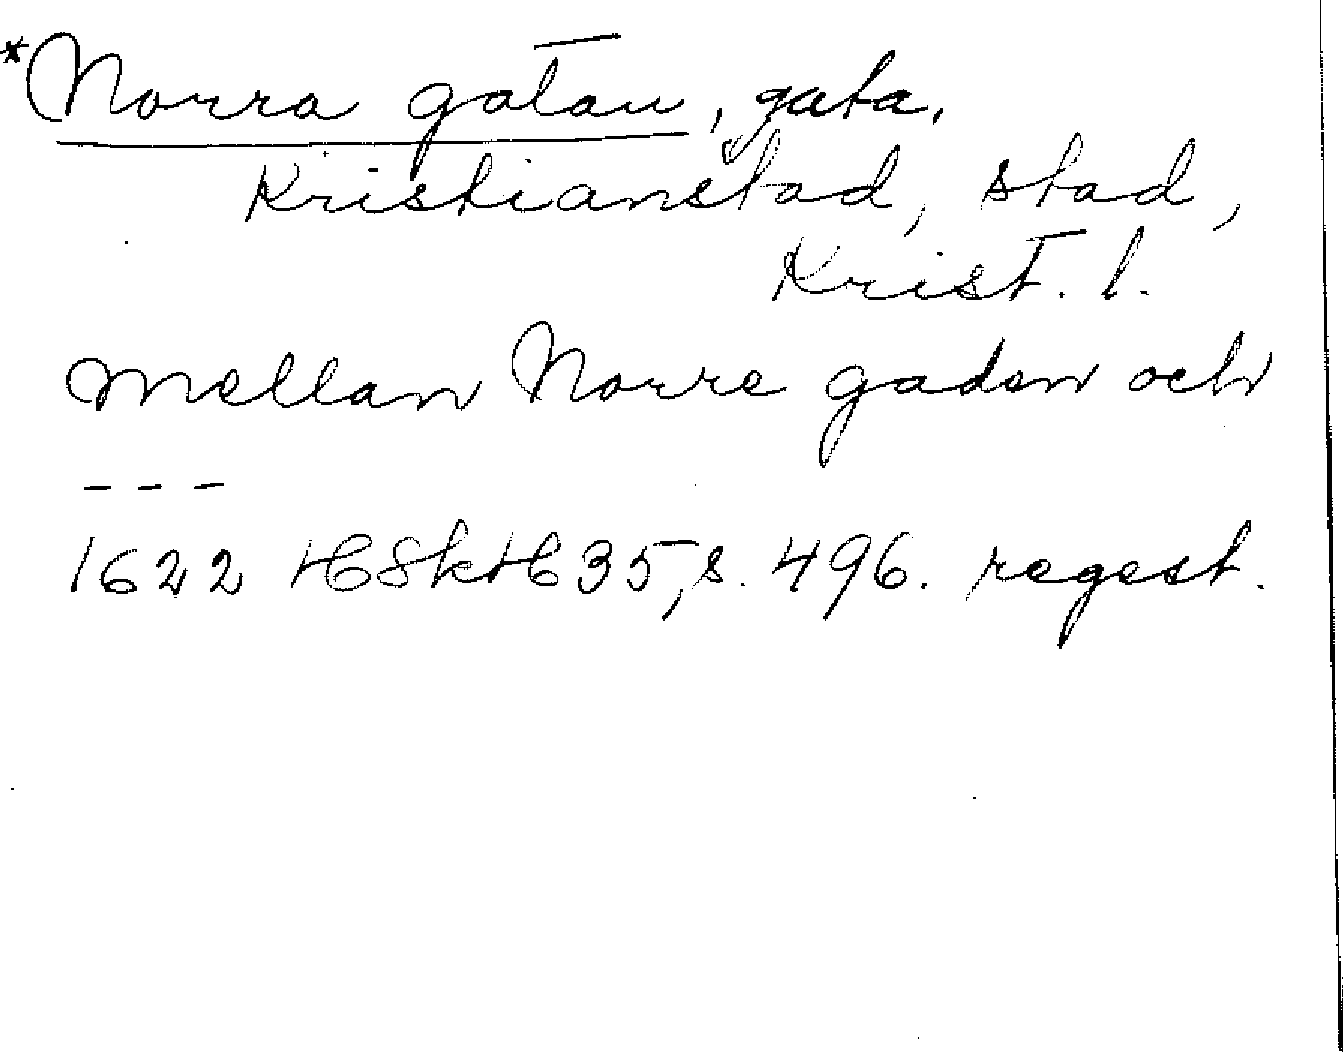 *Norra gatan, gata,
Kristianstad, stad,
Krist. l.
mellan Norre gaden och
---
1622 HSkH 35, s. 496. regest.